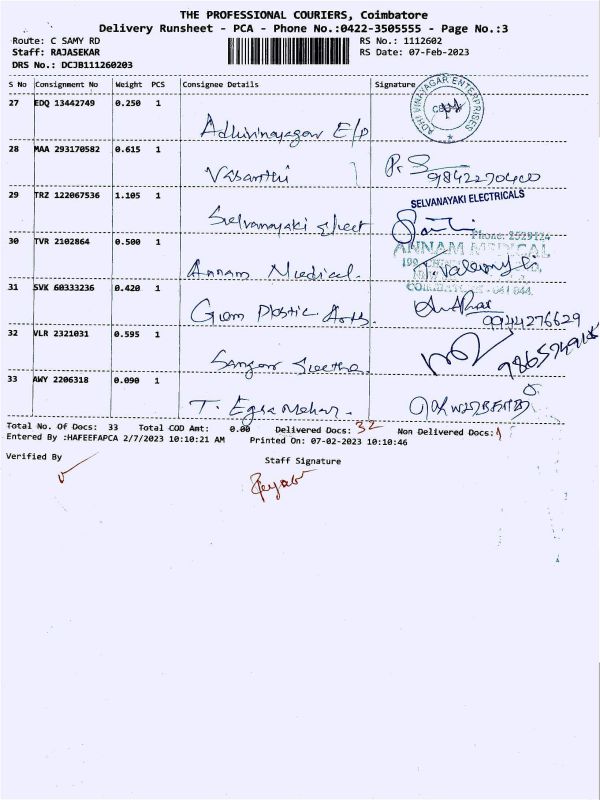 THE PROFESSIONAL COURIERS, Coimbatore
Delivery Runsheet - PCA - Phone No.:0422-3505555 - Page No.:3
Route: C SAMY RD RS No.: 1112602
Staff: RAJASEKAR RS Date: 07-Feb-2023
DRS No.: DCJB111260203
S No Consignment No Weight PCS Consignee Details Signature
27 EDQ 13442749 0.250 1
ADHI VINAYAGAR ENTERPRISES
Adhivinayagar E/p
28 MAA 293170582 0.615 1
Vasanthi 9842270400
29 TRZ 122067536 1.105 1 SELVANAYAKI ELECTRICALS
Selvanayaki
30 TVR 2102864 0.500 1 ANNAM MEDICAL
Annam Medical.
31 SVK 60333236 0.420 1
Gom Plastic Arts. 9944276629
32 VLR 2321031 0.595 1
33 AWY 2206318 0.090 1
Total No. Of Docs: 33 Total COD Amt: 0.00 Delivered Docs: 32 Non Delivered Docs: 1
Entered By :HAFEEFAPCA 2/7/2023 10:10:21 AM Printed On: 07-02-2023 10:10:46
Verified By Staff Signature